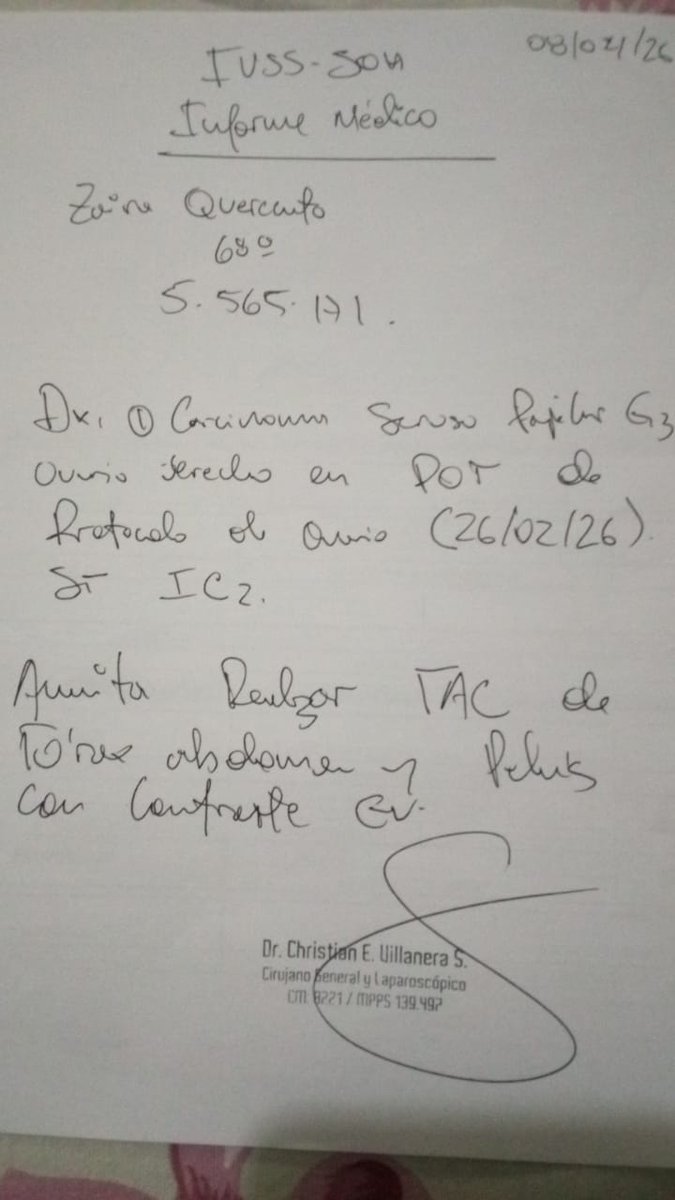 08/04/26
IVSS-SOH
Informe Médico
Zaira Querecuto
68º
5.565.171.
Dx, ① Carcinoma Seroso Papilar G3
Ovario derecho en POT de
Protocolo de Ovario (26/02/26).
ST IC2.
Amerita Realizar TAC de
Tórax abdomen y Pelvis
Con Contraste EV.
Dr. Christian E. Villanera S.
Cirujano General y Laparoscópico
CM. 8221 / MPPS 139.497